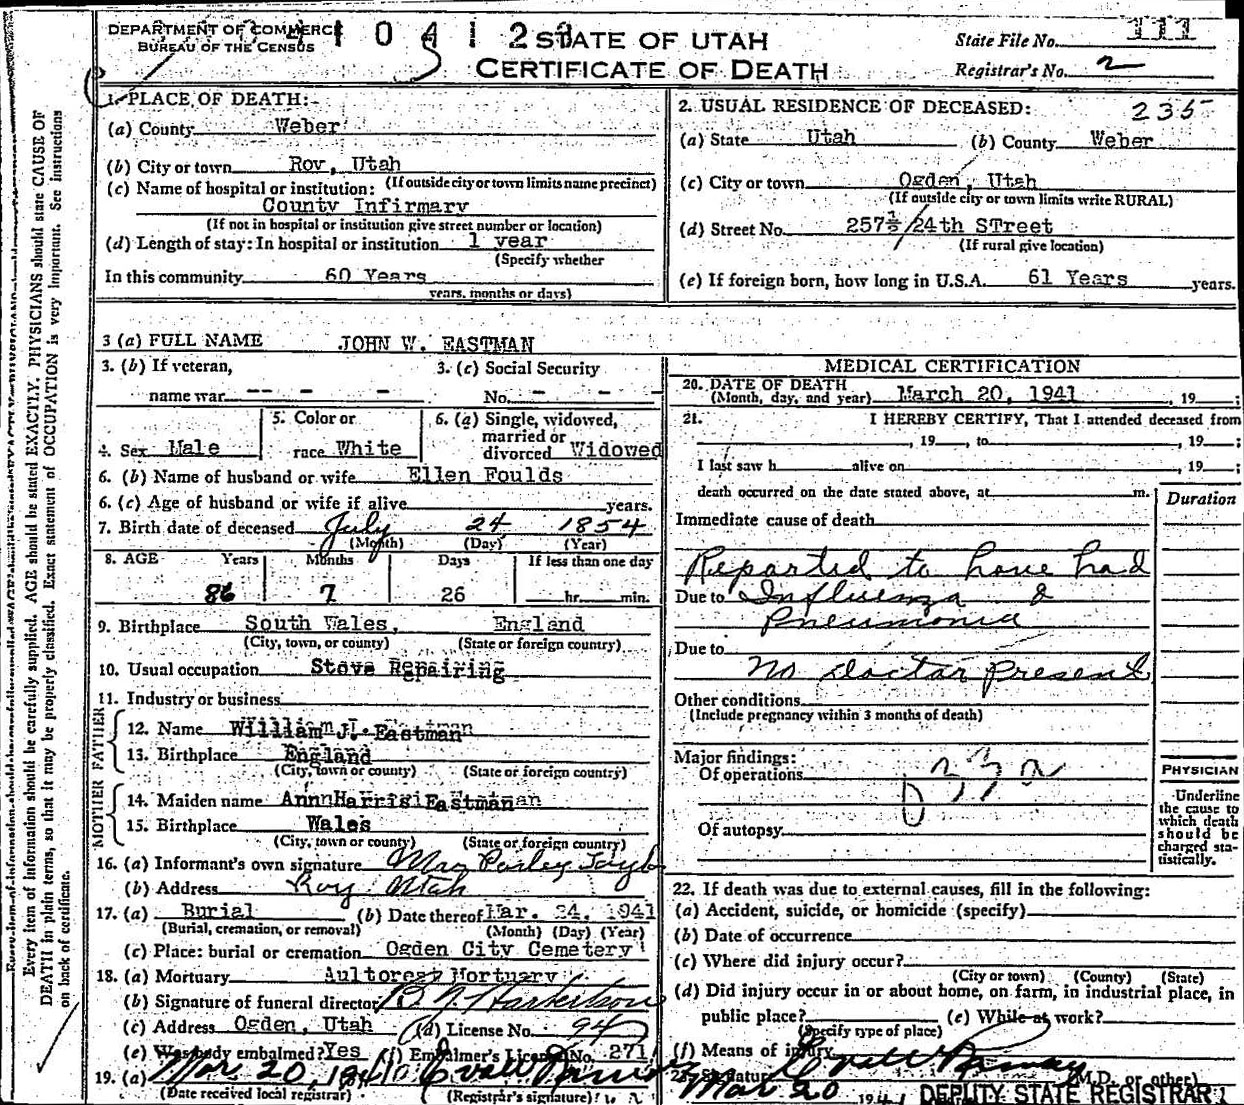 DEPARTMENT OF COMMERCE
BUREAU OF THE CENSUS
STATE OF UTAH
CERTIFICATE OF DEATH
State File No. 111
Registrar's No. 2
1. PLACE OF DEATH:
(a) County Weber
(b) City or town Roy, Utah
(If outside city or town limits name precinct)
(c) Name of hospital or institution:
County Infirmary
(If not in hospital or institution give street number or location)
(d) Length of stay: In hospital or institution 1 year
(Specify whether
In this community 60 Years
years, months or days)
2. USUAL RESIDENCE OF DECEASED: 235
(a) State Utah (b) County Weber
(c) City or town Ogden, Utah
(If outside city or town limits write RURAL)
(d) Street No. 257½/24th STreet
(If rural give location)
(e) If foreign born, how long in U.S.A. 61 Years years.
3 (a) FULL NAME JOHN W. EASTMAN
3. (b) If veteran, name war - - - -
3. (c) Social Security No. - - -
4. Sex Male
5. Color or race White
6. (a) Single, widowed, married or divorced Widowed
6. (b) Name of husband or wife Ellen Foulds
6. (c) Age of husband or wife if alive years.
7. Birth date of deceased July 24 1854
(Month) (Day) (Year)
8. AGE Years Months Days If less than one day
86 7 26 hr. min.
9. Birthplace South Wales, England
(City, town, or county) (State or foreign country)
10. Usual occupation Stove Repairing
11. Industry or business
FATHER
12. Name William J. Eastman
13. Birthplace England
(City, town or county) (State or foreign country)
MOTHER
14. Maiden name Ann Harris Eastman
15. Birthplace Wales
(City, town or county) (State or foreign country)
16. (a) Informant's own signature
(b) Address Roy Utah
17. (a) Burial (b) Date thereof Mar. 24, 1941
(Burial, cremation, or removal) (Month) (Day) (Year)
(c) Place: burial or cremation Ogden City Cemetery
18. (a) Mortuary Aultorest Mortuary
(b) Signature of funeral director
(c) Address Ogden, Utah (d) License No. 94
(e) Was body embalmed? Yes (f) Embalmer's License No. 271
19. (a) Mar 20, 1941
(Date received local registrar) (Registrar's signature)
MEDICAL CERTIFICATION
20. DATE OF DEATH
(Month, day, and year) March 20, 1941, 19 ;
21. I HEREBY CERTIFY, That I attended deceased from
, 19 , to , 19 ;
I last saw h alive on , 19 ;
death occurred on the date stated above, at m.
Duration
Immediate cause of death
Reported to have had
Due to Influenza &
Pneumonia
Due to
No doctor present
Other conditions
(Include pregnancy within 3 months of death)
Major findings:
Of operations
Of autopsy
PHYSICIAN
Underline
the cause to
which death
should be
charged sta-
tistically.
22. If death was due to external causes, fill in the following:
(a) Accident, suicide, or homicide (specify)
(b) Date of occurrence
(c) Where did injury occur?
(City or town) (County) (State)
(d) Did injury occur in or about home, on farm, in industrial place, in
public place? (e) While at work?
(Specify type of place)
(f) Means of injury
23. Signature (M.D. or other)
Mar 20 1941 DEPUTY STATE REGISTRAR
Every item of information should be carefully supplied. AGE should be stated EXACTLY. PHYSICIANS should state CAUSE OF
DEATH in plain terms, so that it may be properly classified. Exact statement of OCCUPATION is very important. See instructions
on back of certificate.